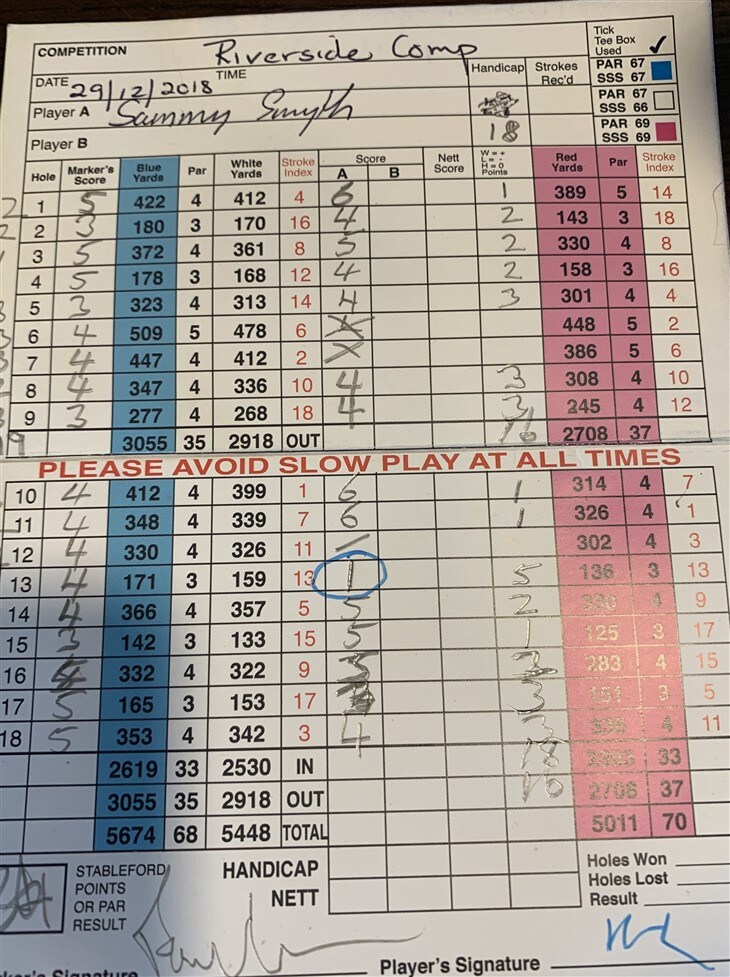 COMPETITION Riverside Comp
Tick Tee Box Used ✓
DATE 29/12/2018 TIME Handicap Strokes Rec'd PAR 67 SSS 67
Player A Sammy Smyth PAR 67 SSS 66
Player B 18 PAR 69 SSS 69
Hole Marker's Score Blue Yards Par White Yards Stroke Index Score A B Nett Score W = + L = - H = O Points Red Yards Par Stroke Index
1 5 422 4 412 4 6 1 389 5 14
2 3 180 3 170 16 4 2 143 3 18
3 5 372 4 361 8 5 2 330 4 8
4 5 178 3 168 12 4 2 158 3 16
5 3 323 4 313 14 4 3 301 4 4
6 4 509 5 478 6 X 448 5 2
7 4 447 4 412 2 X 386 5 6
8 4 347 4 336 10 4 3 308 4 10
9 3 277 4 268 18 4 3 245 4 12
3055 35 2918 OUT 16 2708 37
PLEASE AVOID SLOW PLAY AT ALL TIMES
10 4 412 4 399 1 6 1 314 4 7
11 4 348 4 339 7 6 1 326 4 1
12 4 330 4 326 11 302 4 3
13 4 171 3 159 13 1 5 136 3 13
14 4 366 4 357 5 5 2 4 9
15 3 142 3 133 15 5 1 125 3 17
16 332 4 322 9 3 283 4 15
17 5 165 3 153 17 3 151 3 5
18 5 353 4 342 3 4 3 4 11
2619 33 2530 IN 18 33
3055 35 2918 OUT 16 2708 37
5674 68 5448 TOTAL 5011 70
STABLEFORD POINTS OR PAR RESULT
HANDICAP
NETT
Holes Won
Holes Lost
Result
Marker's Signature Player's Signature